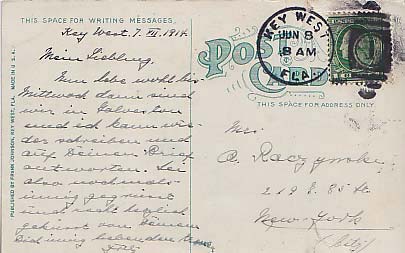 THIS SPACE FOR WRITING MESSAGES.
Key West, 7. VI. 1914.
Mein Liebling.
Nun lebe wohl bis
Mittwoch dann sind
wir in Galveston
und ich kann wie-
der schreiben und
auf Deinen Brief
antworten. Sei
also nochmals
innig gegrüsst
und recht herzlich
geküsst von Deinem
Dich innig liebenden
PUBLISHED BY FRANK JOHNSON, KEY WEST, FLA. MADE IN U.S.A.
POST CARD
KEY WEST
JUN 8
8 AM
FLA.
THIS SPACE FOR ADDRESS ONLY
A. Raczynski
219 E. 85 St.
New-York
(City)